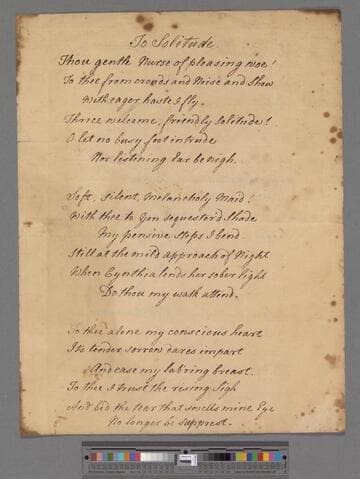 To Solitude
Thou gentle Nurse of pleasing woe!
To thee from crouds and Noise and Show
With eager haste I fly.
Thrice welcome, friendly Solitude!
O let no busy foot intrude
Nor listening Ear be nigh.
Soft, silent, melancholy Maid!
With thee to yon sequester'd Shade
My pensive steps I bend
Still at the mild approach of Night
When Cynthia lends her sober light
Do thou my walk attend.
To thee alone my conscious heart
Its tender sorrow dares impart
And ease my lab'ring breast.
To thee I trust the rising Sigh
And bid the tear that swells mine Eye
No longer be supprest.